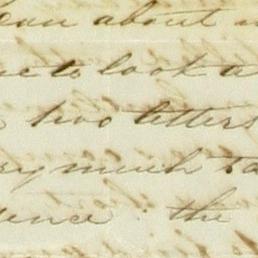 about
to look a
two letters
ry much to
ence. the